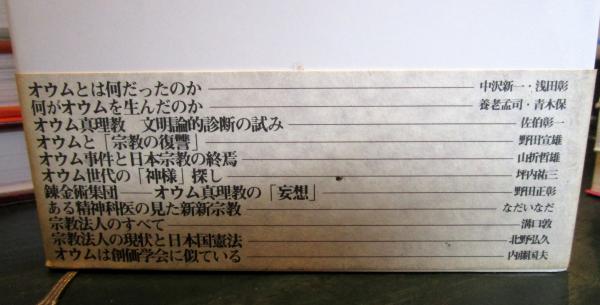 オウムとは何だったのか――中沢新一・浅田彰
何がオウムを生んだのか――養老孟司・青木保
オウム真理教 文明論的診断の試み――佐伯彰一
オウムと「宗教の復讐」――野田宣雄
オウム事件と日本宗教の終焉――山折哲雄
オウム世代の「神様」探し――坪内祐三
錬金術集団――オウム真理教の「妄想」――野田正彰
ある精神科医の見た新新宗教――なだいなだ
宗教法人のすべて――溝口敦
宗教法人の現状と日本国憲法――北野弘久
オウムは創価学会に似ている――内藤国夫